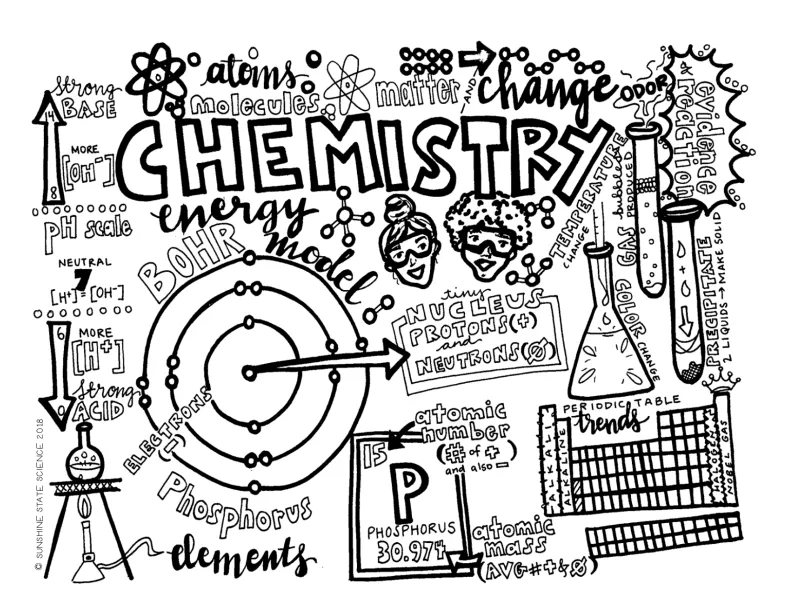 atoms
molecules
matter
AND
change
CHEMISTRY
energy
strong
BASE
14
MORE
[OH⁻]
8
pH scale
NEUTRAL
7
[H⁺]=[OH⁻]
6
MORE
[H⁺]
strong
ACID
0
BOHR
model
ELECTRONS
(−)
Phosphorus
elements
tiny
NUCLEUS
PROTONS(+)
and
NEUTRONS(Ø)
15
P
PHOSPHORUS
30.974
atomic
number
(# of +
and also −)
atomic
mass
(AVG # + & Ø)
ODOR
evidence
of reaction
TEMPERATURE
CHANGE
GAS
bubbles
PRODUCED
COLOR
CHANGE
+
PRECIPITATE
2 LIQUIDS → MAKE SOLID
PERIODIC TABLE
trends
ALKALI
ALKALINE
HALOGEN
NOBEL GAS
© SUNSHINE STATE SCIENCE 2018